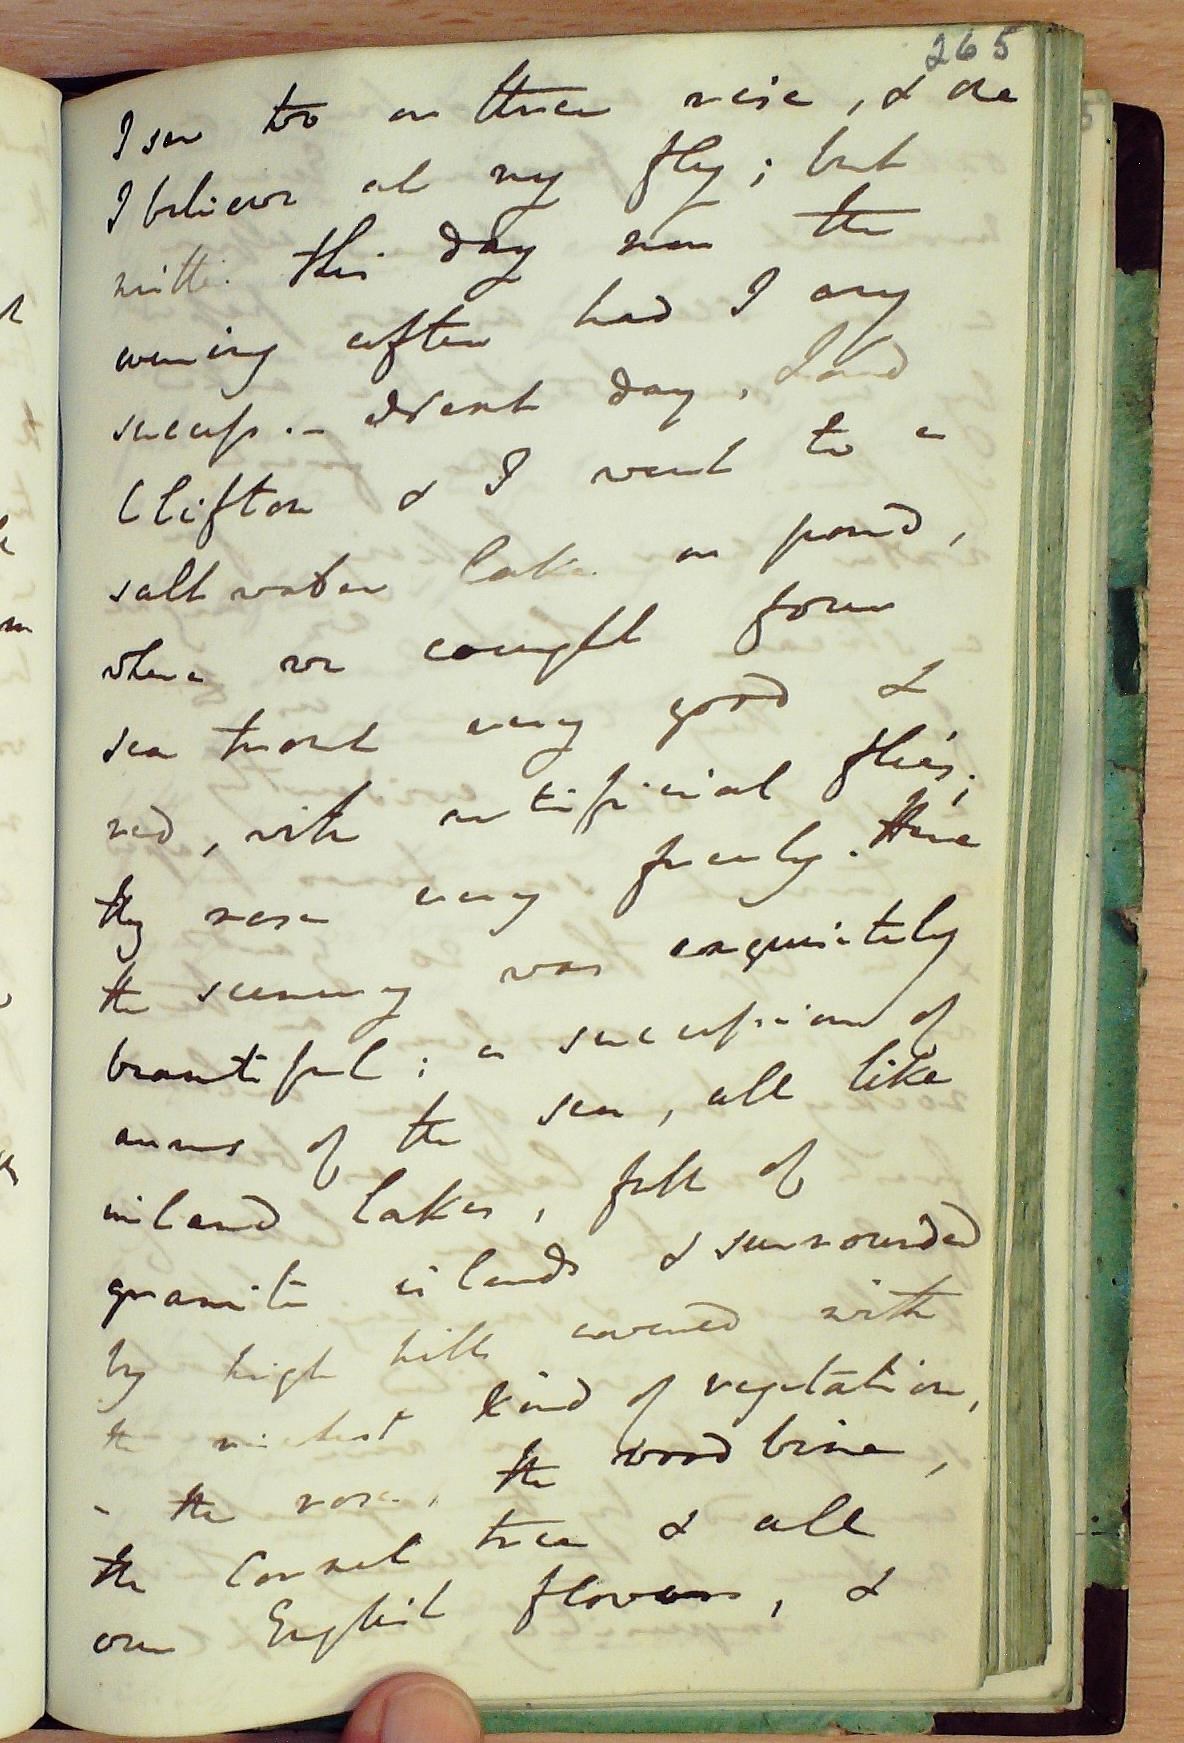 265
I saw two or three rise, & one
I believe at my fly; but
neither this day nor the
evening after had I any
success. – Next day, Lord
Clifton & I went to a
salt water lake or pond,
where we caught four
sea trout very good &
red, with artificial flies;
they rose very freely. Here
the scenery was exquisitely
beautiful; a succession of
arms of the sea, all like
inland lakes, full of
granite islands & surrounded
by high hills covered with
the richest kind of vegetation,
- the rose, the woodbine,
the Cornel tree & all
our English flowers, &